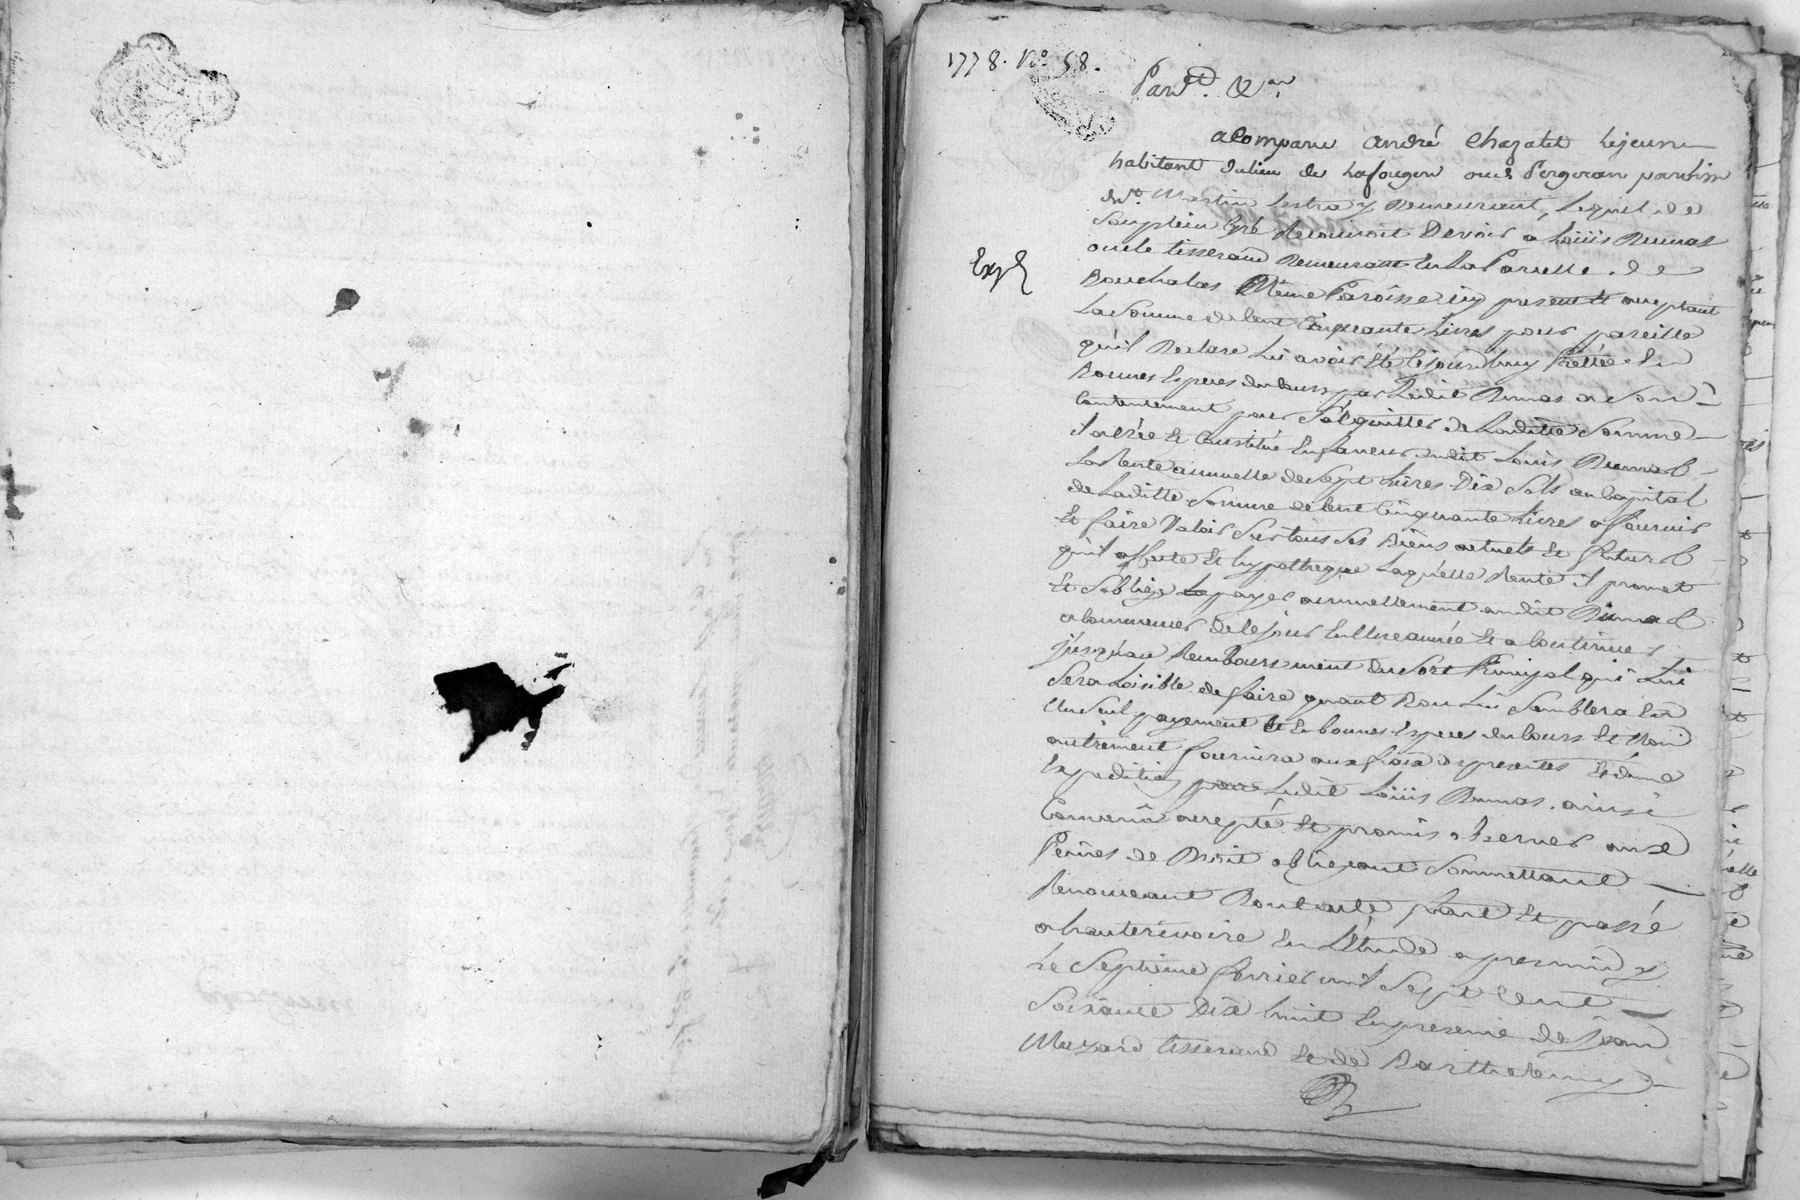 1778. N° 58.
Pard.t &.ar
a Comparu andré Chazalet Lejeune
habitant dulieu de Lafougere paroisse
de St. Martin Lestra y Demeurant, Lequel de
Son plein Gré Reconnoit Devoir a Loüis Dumas
oncle tisserand Demeurant En La Parcelle de
Bouchalas Même Paroisse icy present et acceptant
La Somme de Cent Cinquante Livres pour pareille
qu'il Declare Lui avoir Eté Cejourd'huy Prettée En
Bonnes Especes du Cours par Ledit Dumas a Son
Contentement pour S'acquitter de Laditte Somme
il a Créé Et Constitué En faveur dudit Louis Dumas
La Rente annuelle de Sept Livres Dix Sols au Capital
de Laditte Somme de Cent Cinquante Livres a fournir
Et faire Valoir Sur tous Ses Biens actuels Et futurs
qu'il affecte Et hypotheque Laquelle Rente il promet
Et S'oblige Le payer annuellement audit Dumas
a Commencer De Ce jour En Une année Et a Continuer
jusqu'au Remboursement du Sort Principal qui Lui
Sera Loisible de faire quant Bon Lui Semblera En
Un Seul payement Et En bonnes Especes du Cours Et Non
autrement fournira aux fraix Des presentes Et d'une
Expedition pour Ledit Loüis Dumas. ainsi
Convenû accepté Et promis observer aux
Peines de Droit obligeant Soumettant
Renonceant Dont acte fait Et passé
a hauterivoire En L'Etude apresmidy
Le Septieme fevrier mil Sept Cent
Soixante Dix huit En presence de Jean
Muzard tisserand Et de Barthelemy
Exp.é